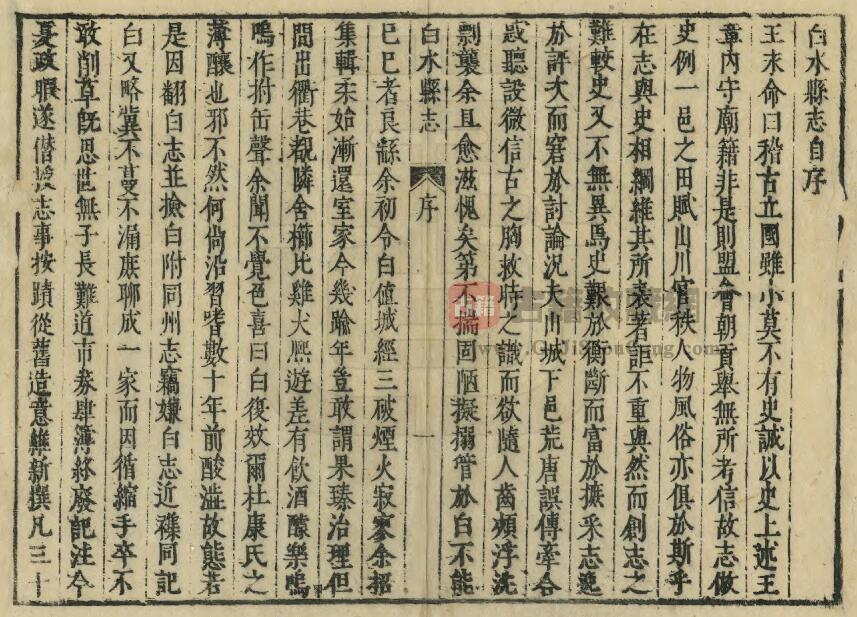 白水縣志自序
王末命曰稽古立國雖小莫不有史誠以史上述王
章內守廟籍非是則盟會朝貢舉無所考信故志倣
史例一邑之田賦山川官秩人物風俗亦俱於斯乎
在志與史相綱維其所表著詎不重與然而創志之
難較史又不無異焉史艱於衡斷而富於摭采志逸
於評次而窘於討論況夫山城下邑荒唐誤傳牽合
惑聽設微信古之胸救時之識而欲隨人齒頰浮沈
剽襲余且愈滋愧矣第不揣固陋擬搦管於白不能
白水縣志
序
一
已已者良繇余初令白値城經三破煙火寂寥余招
集輯柔始漸還室家今幾踰年豈敢謂果臻治理但
間出衢巷覩隣舍櫛比雞犬熙遊差有飲酒釀樂嗚
嗚作拊缶聲余聞不覺色喜曰白復效爾杜康氏之
薄釀也邪不然何尙沿習嗜數十年前酸溢故態若
是因翻白志並撿白附同州志竊嫌白志近襍同記
白又略冀不蔓不漏庶聊成一家而因循縮手卒不
敢削草旣思世無子長難道市劵肆簿終廢記注今
夏政暇遂僭援志事按蹟從舊造意維新撰凡三十